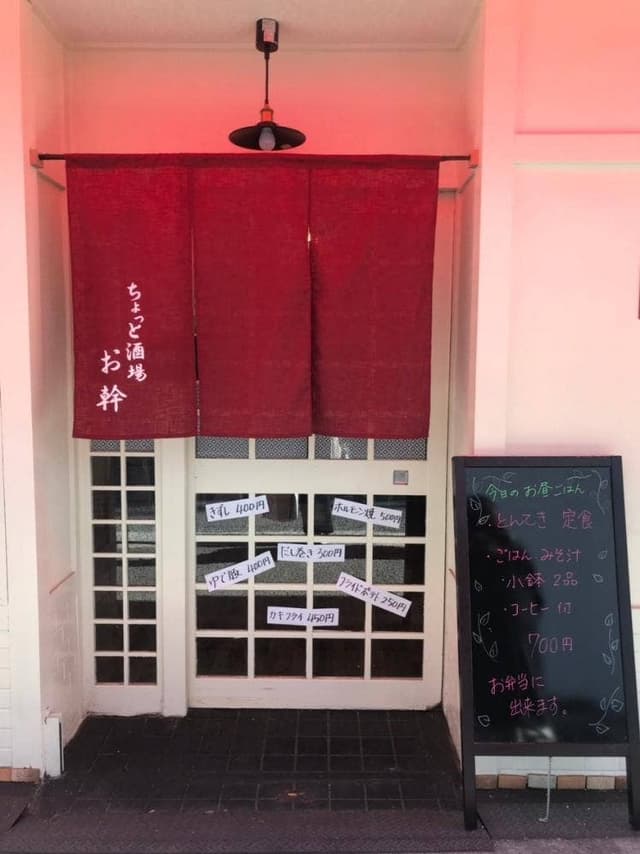 ちょっと酒場
お幹
きずし 400円
ホルモン焼 500円
だし巻き 300円
ゆで豚 400円
フライドポテト 250円
カキフライ 450円
今日のお昼ごはん
とんてき 定食
・ごはん・みそ汁
・小鉢 2品
・コーヒー付
700円
お弁当に
出来ます。